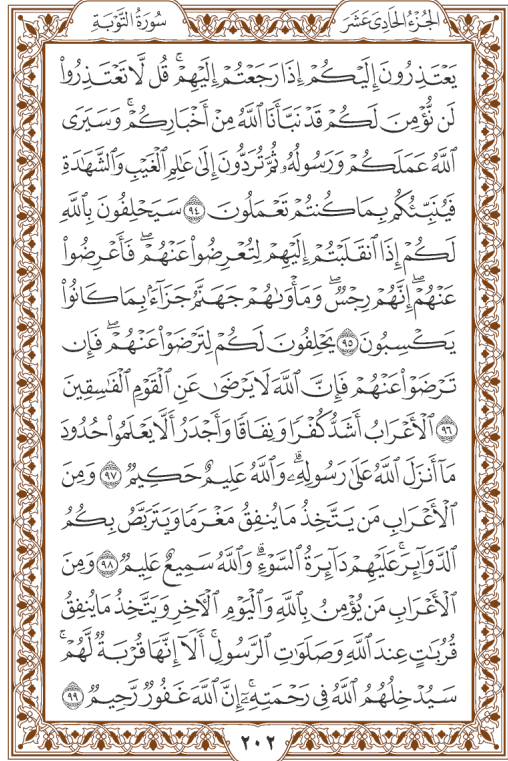 الجُزْءُ الحَادِي عَشَرَ
سُورَةُ التَّوْبَةِ
يَعْتَذِرُونَ إِلَيْكُمْ إِذَا رَجَعْتُمْ إِلَيْهِمْ ۚ قُل لَّا تَعْتَذِرُوا۟
لَن نُّؤْمِنَ لَكُمْ قَدْ نَبَّأَنَا ٱللَّهُ مِنْ أَخْبَارِكُمْ ۚ وَسَيَرَى
ٱللَّهُ عَمَلَكُمْ وَرَسُولُهُۥ ثُمَّ تُرَدُّونَ إِلَىٰ عَٰلِمِ ٱلْغَيْبِ وَٱلشَّهَٰدَةِ
فَيُنَبِّئُكُم بِمَا كُنتُمْ تَعْمَلُونَ ٩٤ سَيَحْلِفُونَ بِٱللَّهِ
لَكُمْ إِذَا ٱنقَلَبْتُمْ إِلَيْهِمْ لِتُعْرِضُوا۟ عَنْهُمْ ۖ فَأَعْرِضُوا۟
عَنْهُمْ ۖ إِنَّهُمْ رِجْسٌ ۖ وَمَأْوَىٰهُمْ جَهَنَّمُ جَزَآءًۢ بِمَا كَانُوا۟
يَكْسِبُونَ ٩٥ يَحْلِفُونَ لَكُمْ لِتَرْضَوْا۟ عَنْهُمْ ۖ فَإِن
تَرْضَوْا۟ عَنْهُمْ فَإِنَّ ٱللَّهَ لَا يَرْضَىٰ عَنِ ٱلْقَوْمِ ٱلْفَٰسِقِينَ
٩٦ ٱلْأَعْرَابُ أَشَدُّ كُفْرًا وَنِفَاقًا وَأَجْدَرُ أَلَّا يَعْلَمُوا۟ حُدُودَ
مَآ أَنزَلَ ٱللَّهُ عَلَىٰ رَسُولِهِۦ ۗ وَٱللَّهُ عَلِيمٌ حَكِيمٌ ٩٧ وَمِنَ
ٱلْأَعْرَابِ مَن يَتَّخِذُ مَا يُنفِقُ مَغْرَمًا وَيَتَرَبَّصُ بِكُمُ
ٱلدَّوَآئِرَ ۚ عَلَيْهِمْ دَآئِرَةُ ٱلسَّوْءِ ۗ وَٱللَّهُ سَمِيعٌ عَلِيمٌ ٩٨ وَمِنَ
ٱلْأَعْرَابِ مَن يُؤْمِنُ بِٱللَّهِ وَٱلْيَوْمِ ٱلْءَاخِرِ وَيَتَّخِذُ مَا يُنفِقُ
قُرُبَٰتٍ عِندَ ٱللَّهِ وَصَلَوَٰتِ ٱلرَّسُولِ ۚ أَلَآ إِنَّهَا قُرْبَةٌ لَّهُمْ ۚ
سَيُدْخِلُهُمُ ٱللَّهُ فِى رَحْمَتِهِۦٓ ۗ إِنَّ ٱللَّهَ غَفُورٌ رَّحِيمٌ ٩٩
٢٠٢